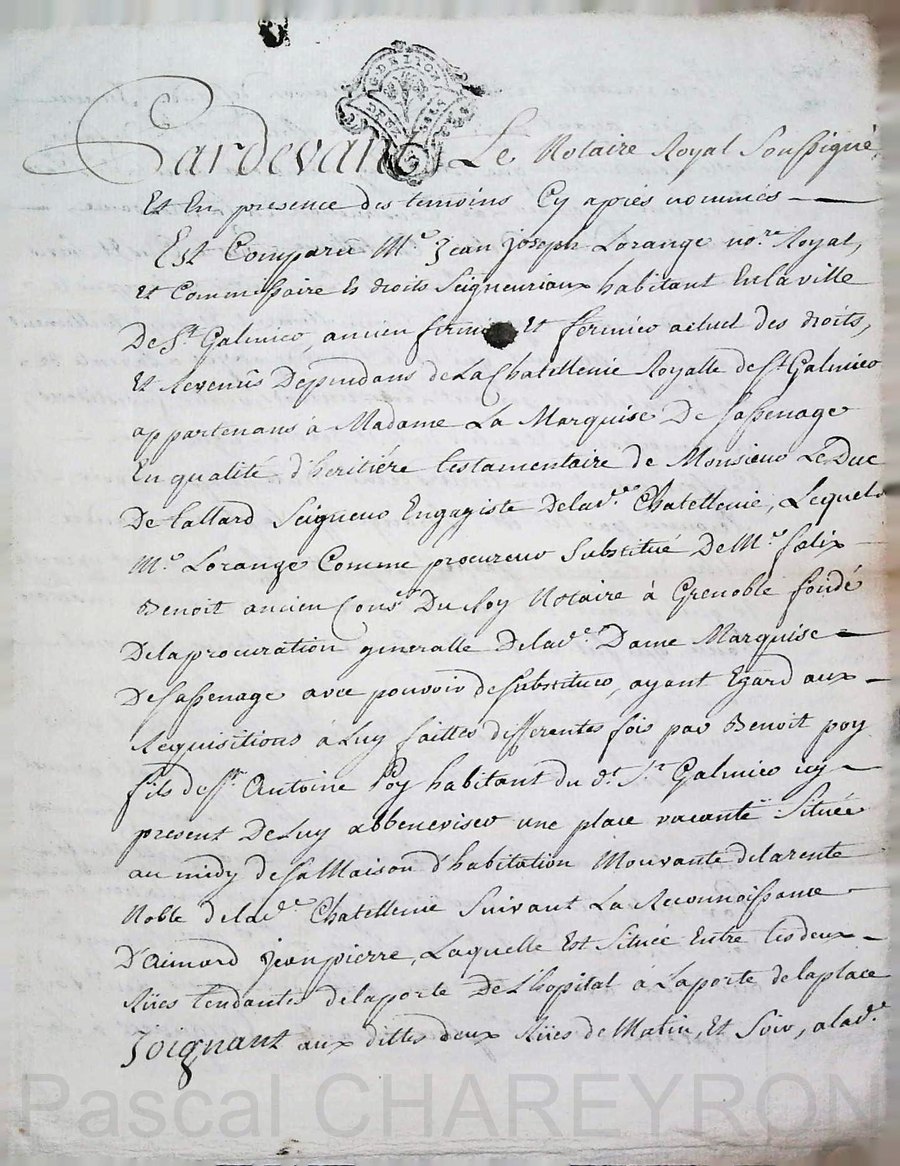 G DE LYON
DEUX SOLS
Pardevant Le Notaire Royal Soussigné,
Et En presence des temoins Cy aprés nommés
Est Comparu Me. Jean Joseph Lorange nore. Royal,
et Commissaire Es droits Seigneuriaux habitant En la ville
De St. Galmier, ancien fermier Et fermier actuel des droits,
Et Revenûs Dependans de La Chatellenie Royalle de St. Galmier
appartenans à Madame La Marquise De Sassenage
En qualité d'heritiére testamentaire de Monsieur Le Duc
De tallard Seigneur Engagiste Delade. Chatellenie, Lequel
Me. Lorange Comme procureur Substitué De Me. fælix
Benoit ancien Conser. Du Roy Notaire à Grenoble fondé
De la procuration generalle Delade. Dame Marquise
De Sassenage avec pouvoir de substituer, ayant Egard aux
Requisitions à Luy faittes differentes fois par Benoit poy
fils de Sr. Antoine Poy habitant du dt. St. Galmier icy
present De Luy abbeneviser une place vacante Située
au midy de Sa Maison d'habitation Mouvante de la rente
Noble de lade. Chatellenie Suivant La Reconnoissance
D'aimard Jean pierre, Laquelle Est Située Entre les deux
Rües tendantes de la porte De L'hopital à La porte de la place
Joignant aux dittes deux Rües de Matin, Et Soir, a lade.
Pascal CHAREYRON